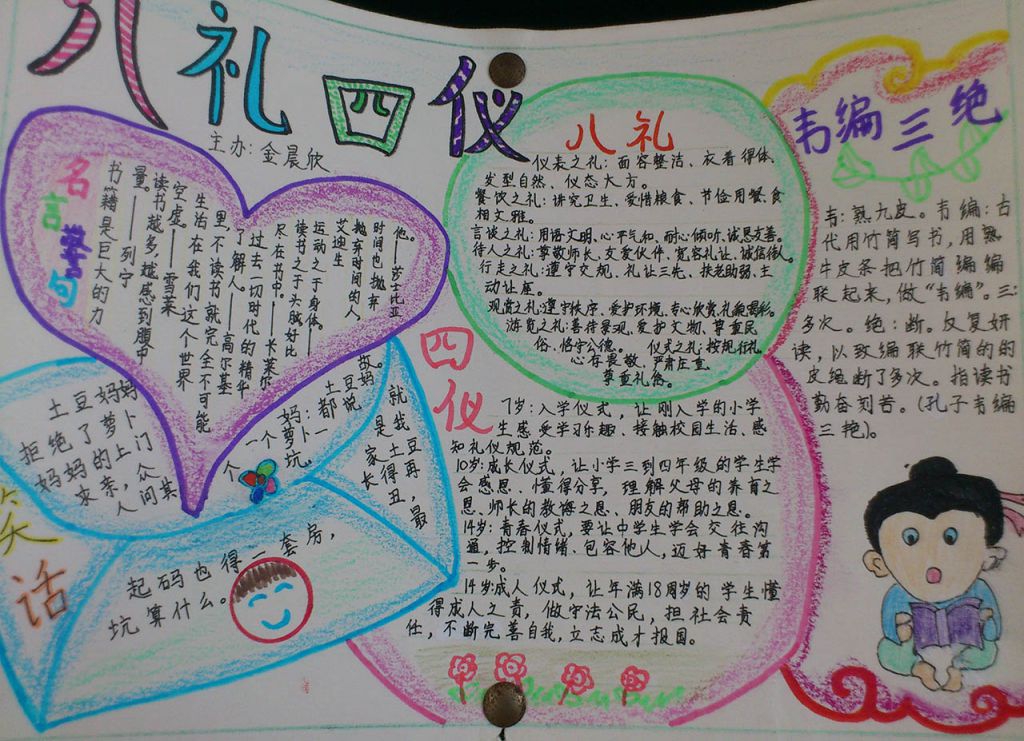 八礼四仪
主办:金晨欣
名言警句
书籍是巨大的力
量。——列宁
读书越多,越感到腹中
空虚。——雪莱
生活在我们这个世界
里,不读书就完全不可能
了解人。——高尔基
过去一切时代的精华
尽在书中。——长莱尔
读书之于头脑,好比
运动之于身体。——
艾迪生
抛弃时间的人,
时间也抛弃
他。——莎士比亚
八礼
仪表之礼:面容整洁、衣着得体、
发型自然、仪态大方。
餐饮之礼:讲究卫生、爱惜粮食、节俭用餐、食
相文雅。
言谈之礼:用语文明、心平气和、耐心倾听、诚恳友善。
待人之礼:尊敬师长、友爱伙伴、宽容礼让、诚信待人。
行走之礼:遵守交规、礼让三先、扶老助弱、主
动让座。
观赏之礼:遵守秩序、爱护环境、专心欣赏、礼貌喝彩。
游览之礼:善待景观、爱护文物、尊重民
俗、恪守公德。 仪式之礼:按规行礼
心存畏敬、严肃庄重、
尊重礼俗。
四仪
7岁:入学仪式,让刚入学的小学
生感受学习乐趣、接触校园生活、感
知礼仪规范。
10岁:成长仪式,让小学三到四年级的学生学
会感恩、懂得分享,理解父母的养育之
恩、师长的教诲之恩、朋友的帮助之恩。
14岁:青春仪式,要让中学生学会交往沟
通,控制情绪、包容他人,迈好青春第
一步。
14岁:成人仪式,让年满18周岁的学生懂
得成人之责,做守法公民,担社会责
任,不断完善自我,立志成才报国。
韦编三绝
韦:熟九皮。韦编:古
代用竹简写书,用熟
牛皮条把竹简编编
联起来,做“韦编”。三:
多次。绝:断。反复妍
读,以致编联竹简的的
皮绝断了多次。指读书
勤奋刻苦。(孔子韦编
三艳)。
笑话
土豆妈妈
拒绝了萝卜
妈妈的上门
求亲,众
人问其
故。
土豆妈
妈:都说
一个萝卜一
个坑。
就是我
家土豆
长得再
丑,最
起码也得一套房,
坑算什么。